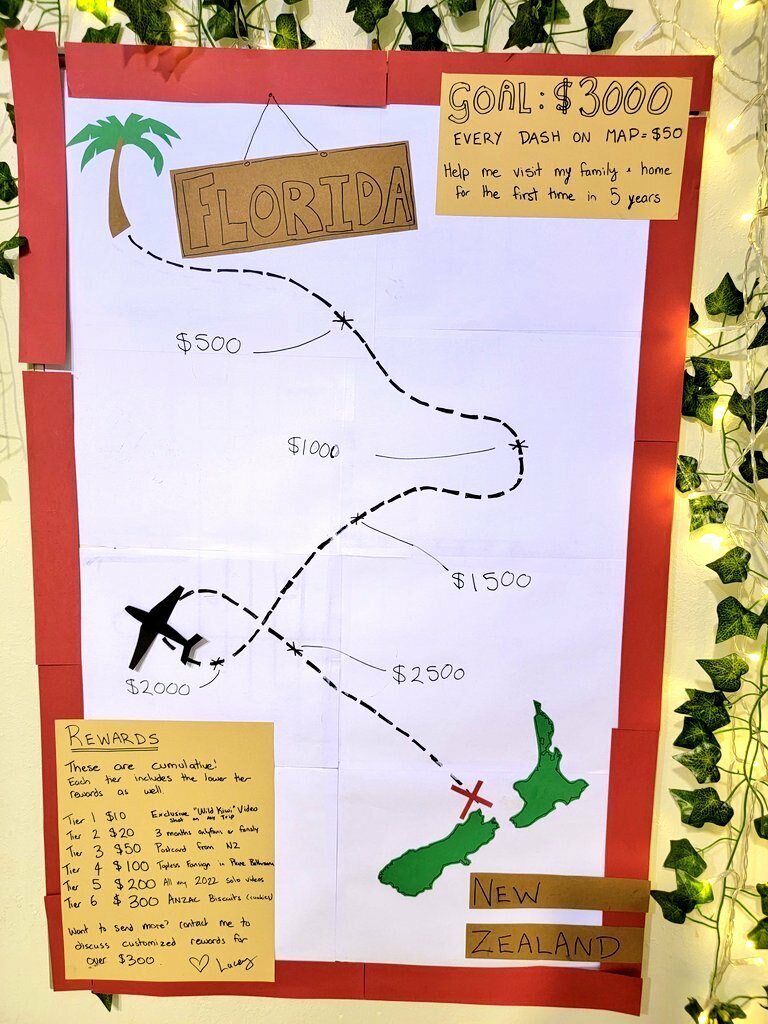 FLORIDA
GOAL: $3000
EVERY DASH ON MAP = $50
Help me visit my family + home
for the first time in 5 years
$500
$1000
$1500
$2000
$2500
REWARDS
These are cumulative!
Each tier includes the lower tier
rewards as well.
Tier 1 $10 Exclusive "Wild Kiwi" Video
Shot on my Trip
Tier 2 $20 3 months onlyfans or fansly
Tier 3 $50 Postcard from NZ
Tier 4 $100 Topless Fansign in Plane Bathroom
Tier 5 $200 All my 2022 solo videos
Tier 6 $300 ANZAC Biscuits (cookies)
Want to send more? contact me to
discuss customized rewards for
over $300. ♡ Lacey
NEW
ZEALAND